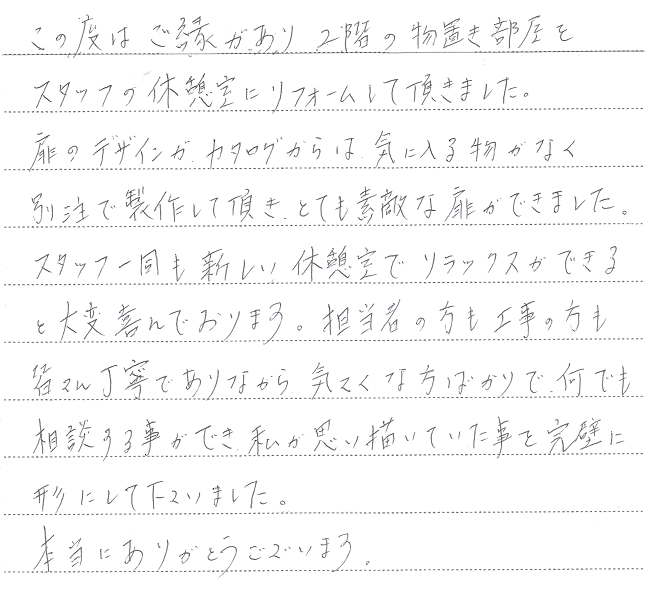 この度は ご縁があり 2階の物置き部屋を
スタッフの休憩室にリフォームして頂きました。
扉のデザインが、カタログからは、気に入る物がなく
別注で製作して頂き、とても素敵な扉ができました。
スタッフ一同も新しい休憩室でリラックスができる
と大変喜んでおります。担当者の方も工事の方も
皆さん丁寧でありながら 気さくな方ばかりで、何でも
相談する事ができ、私が思い描いていた事を完璧に
形にして下さいました。
本当にありがとうございます。